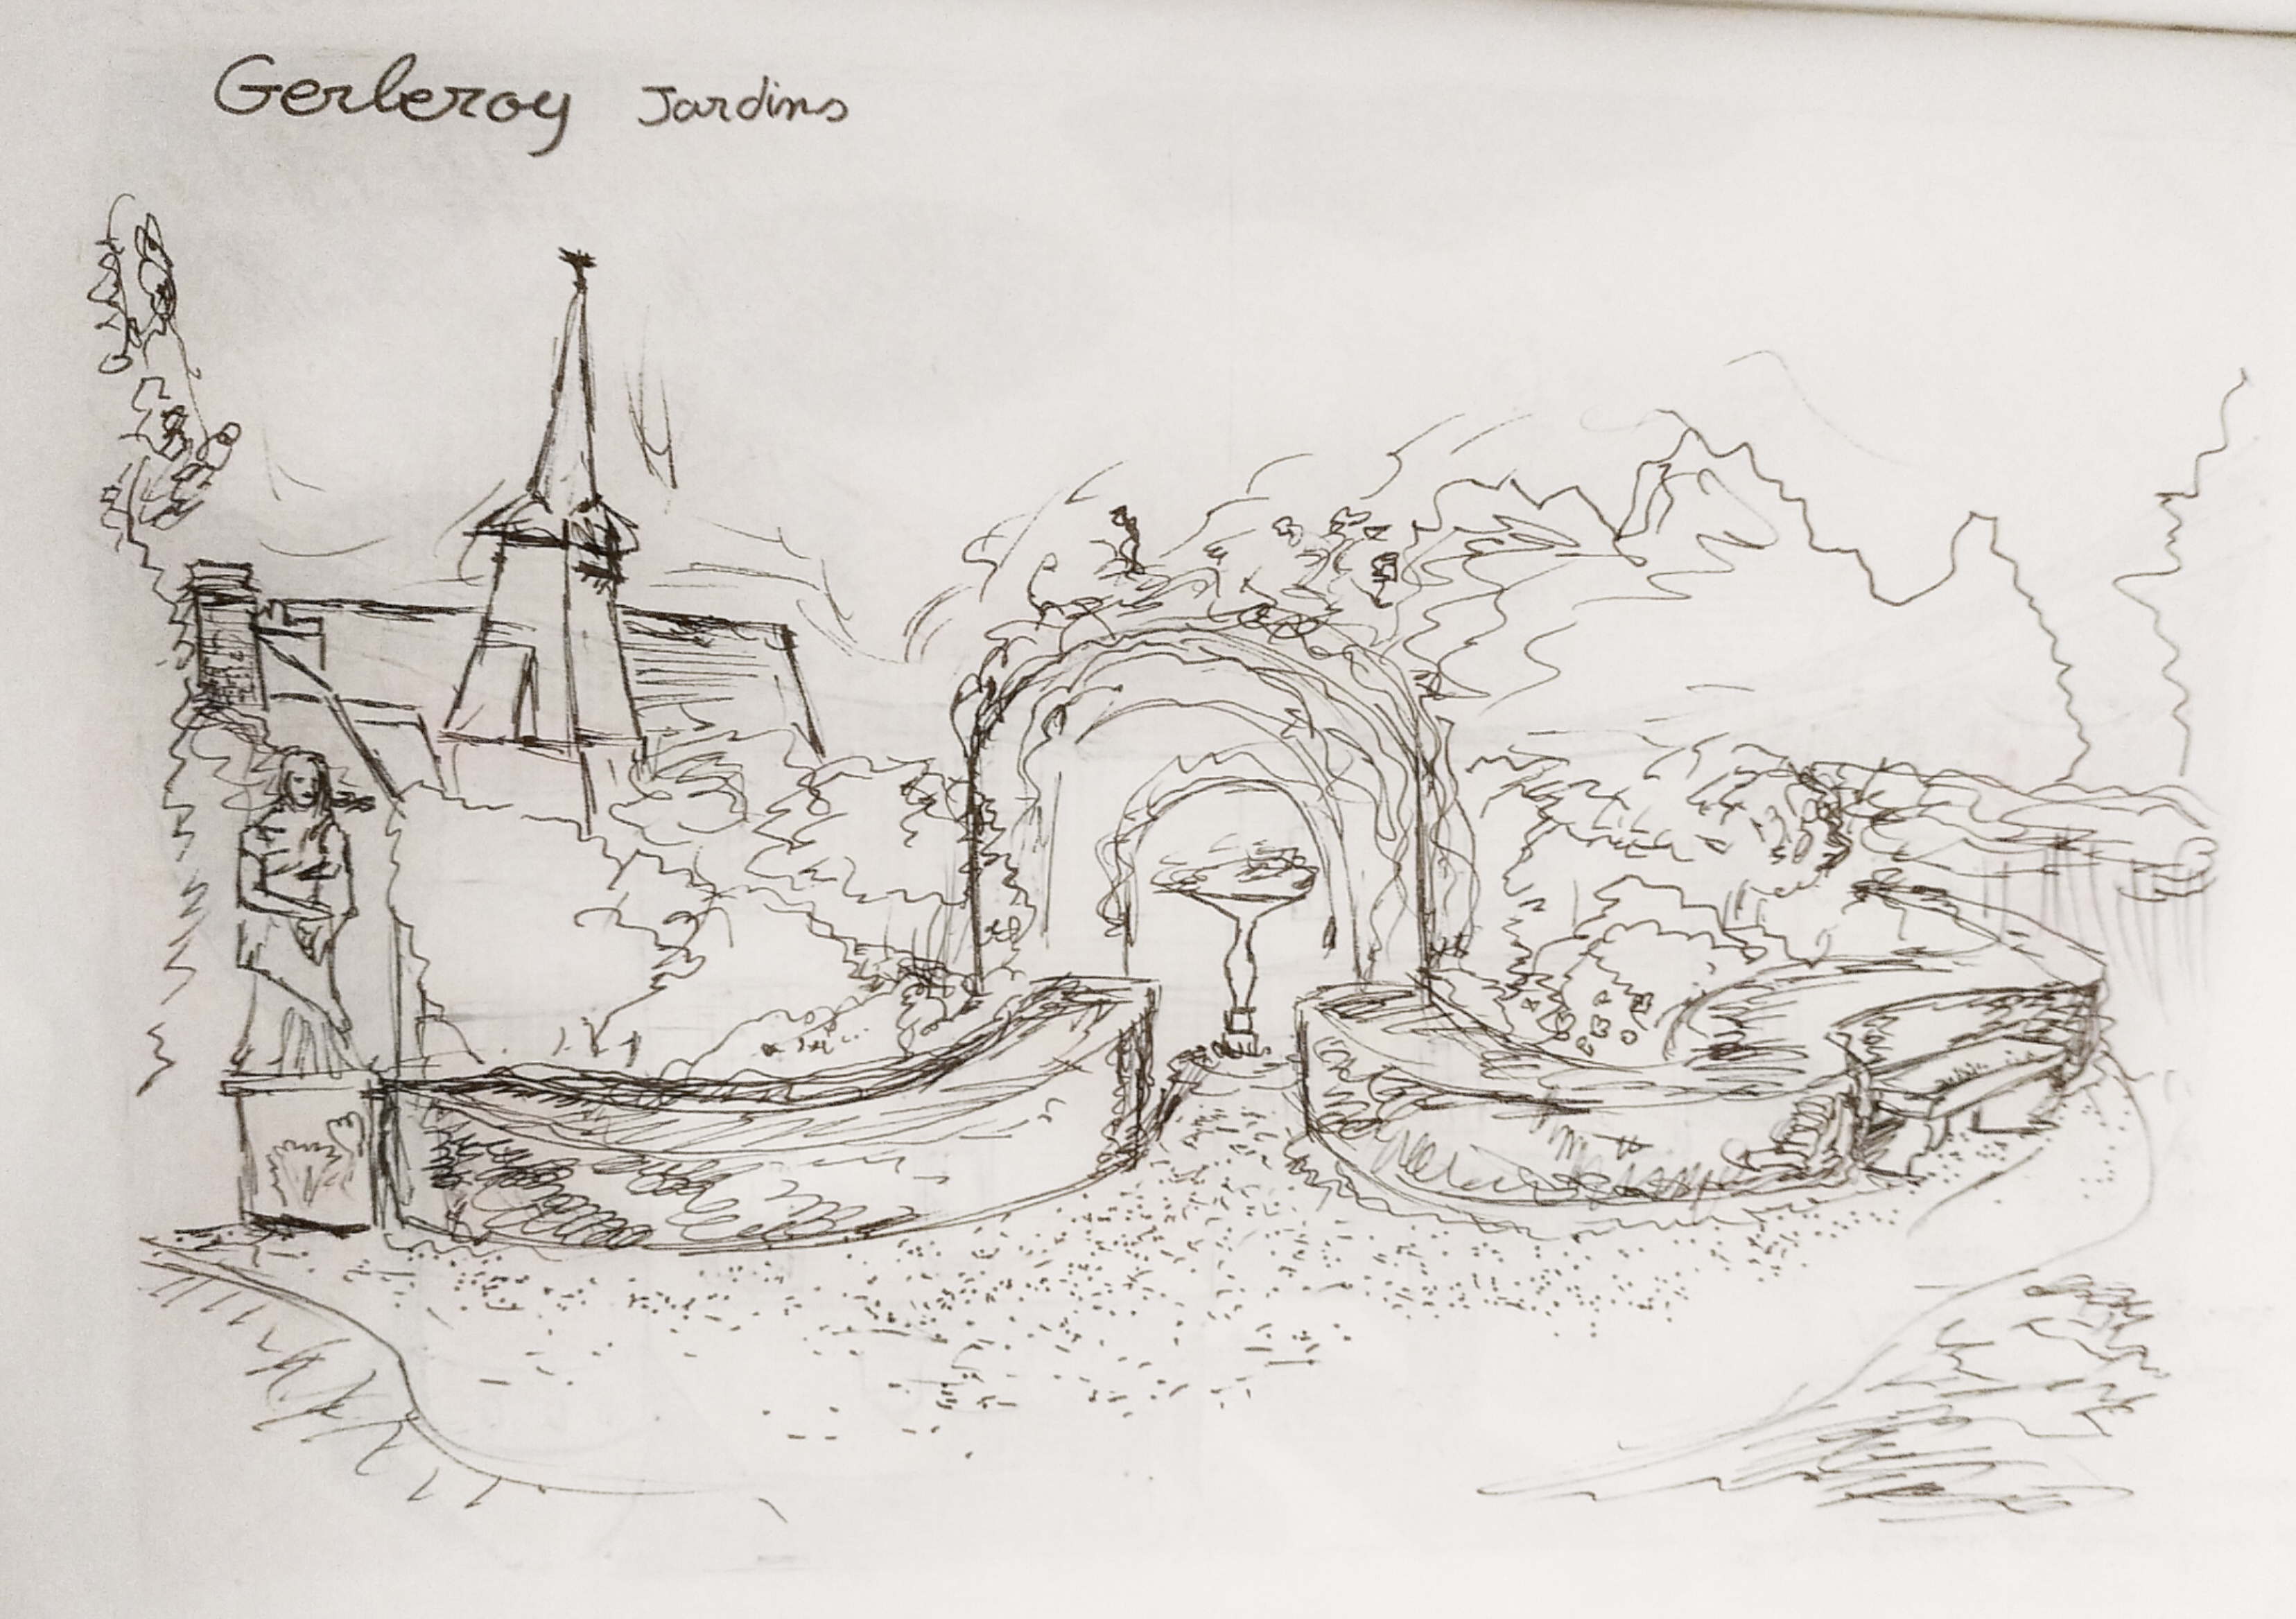 Gerberoy Jardins